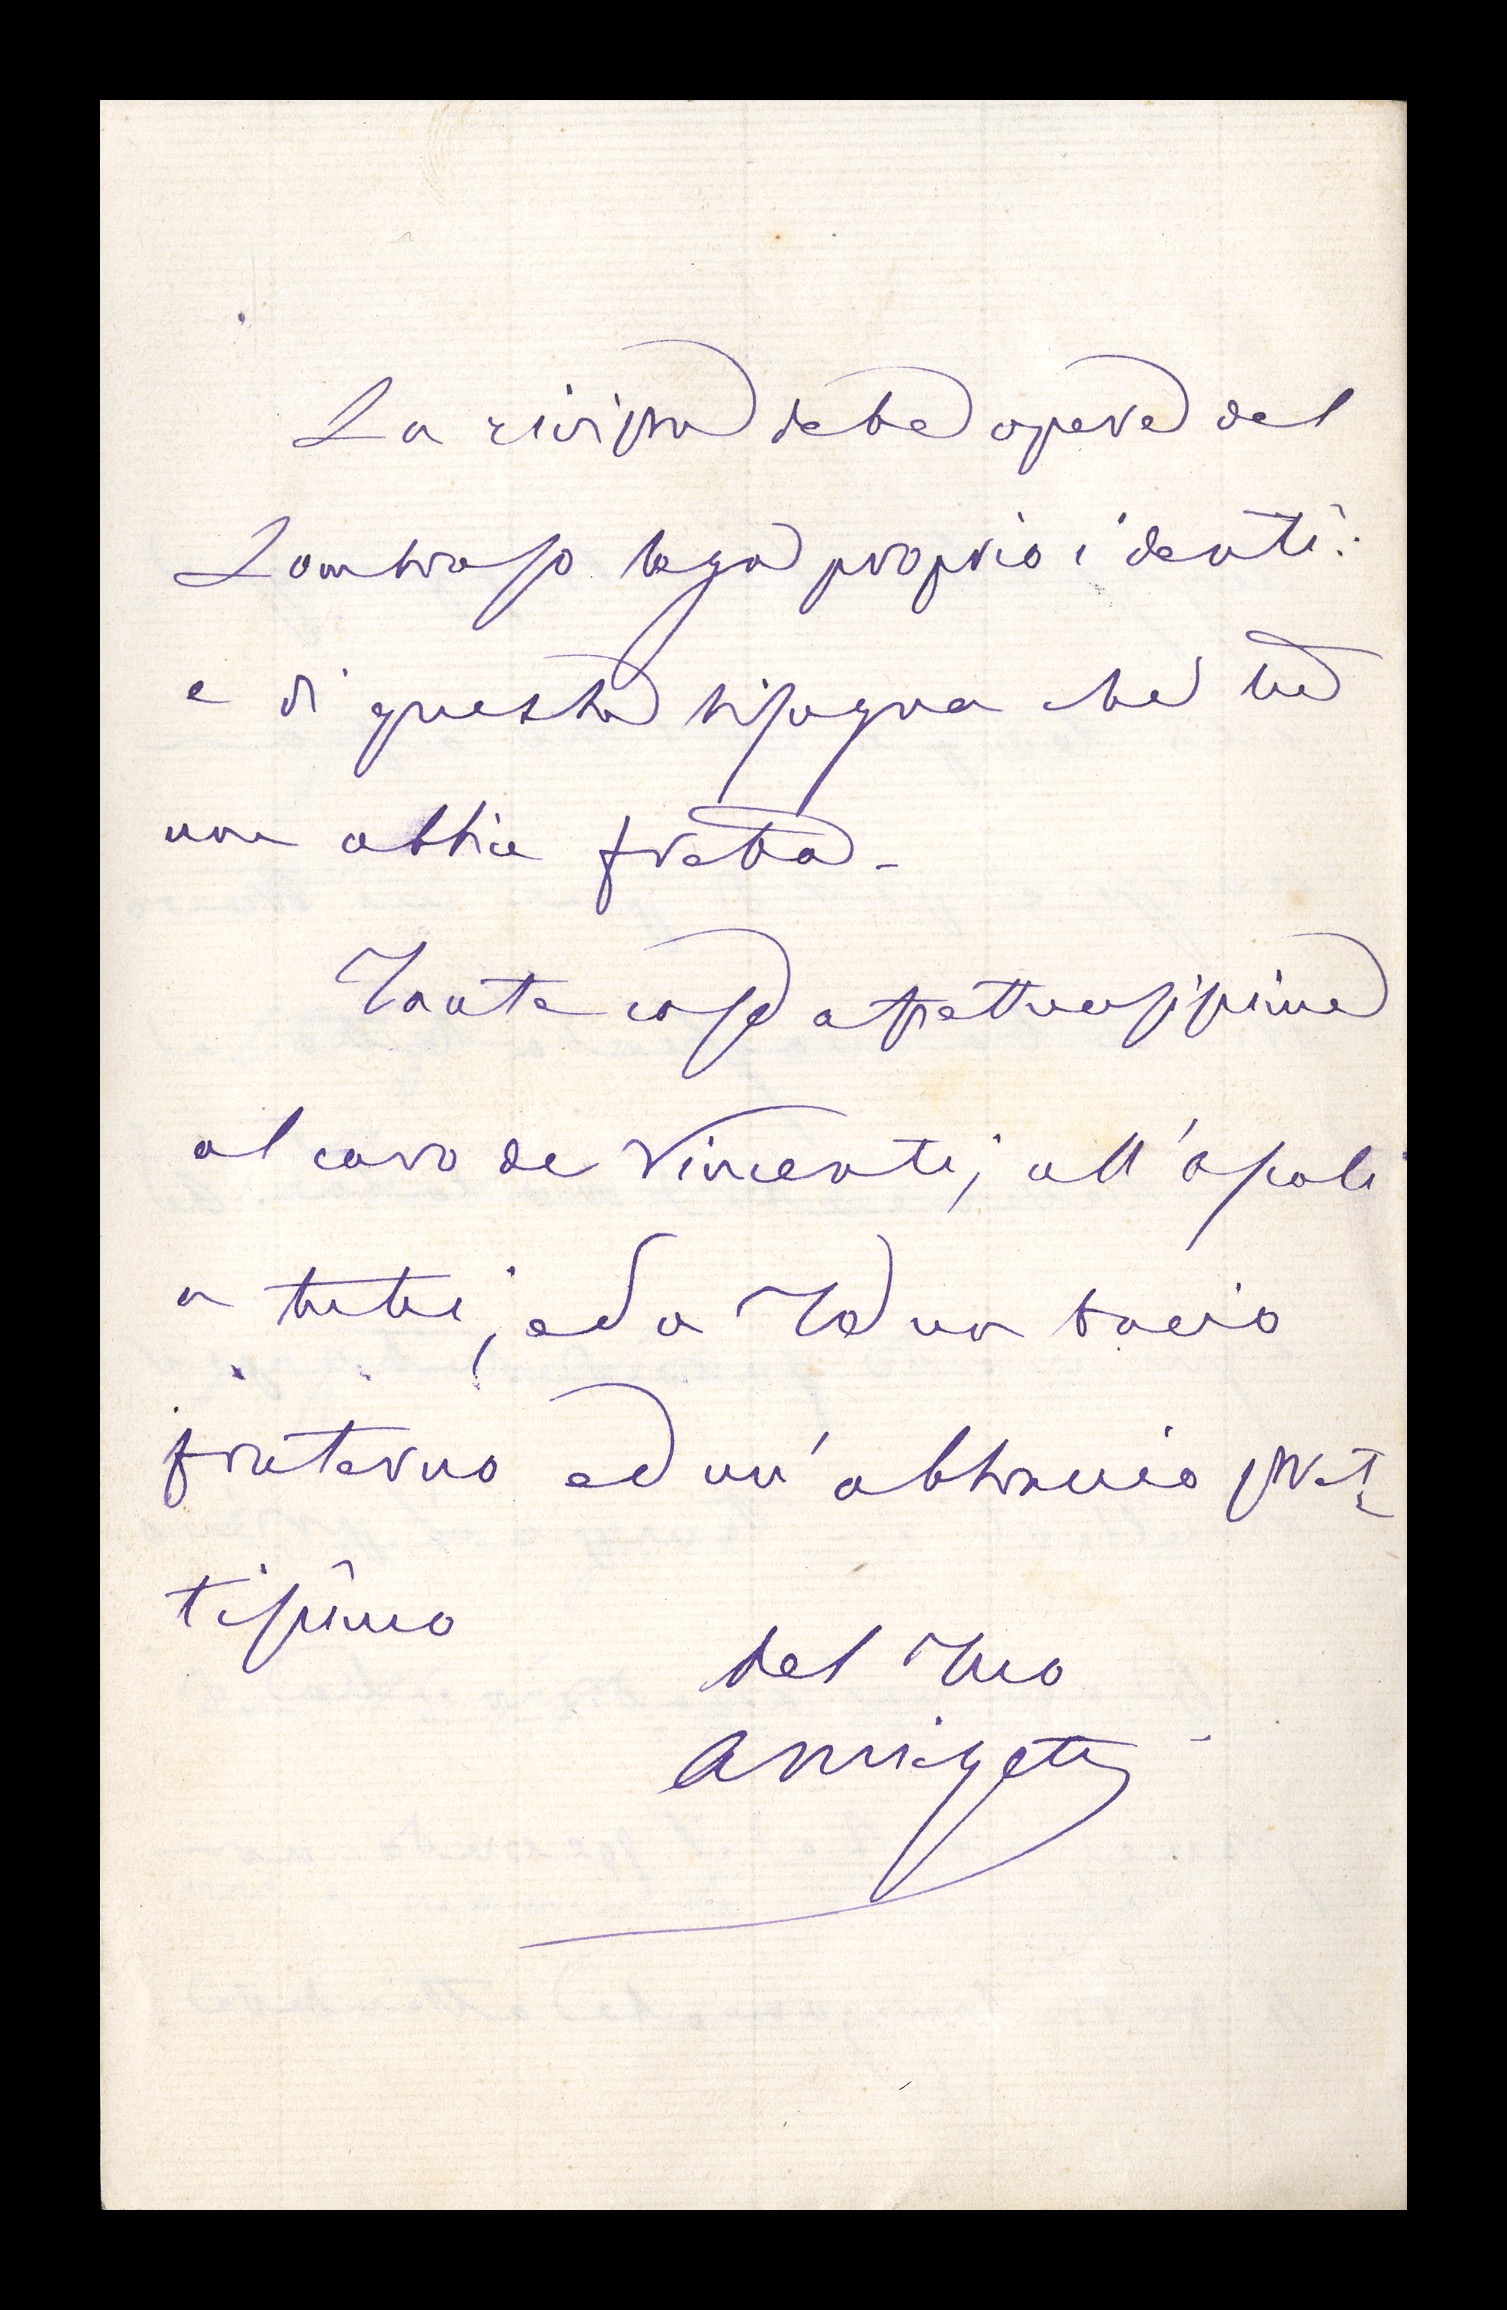 La rivista delle opere del
Lombroso lega proprio i denti:
e di questa bisogna che tu
non abbia fretta.-
Tante cose affettuosissime
al caro de Vincenti, all'Ascoli
a tutti, ed a Te un bacio
fraterno ed un' abbraccio stret-
tissimo
del Tuo